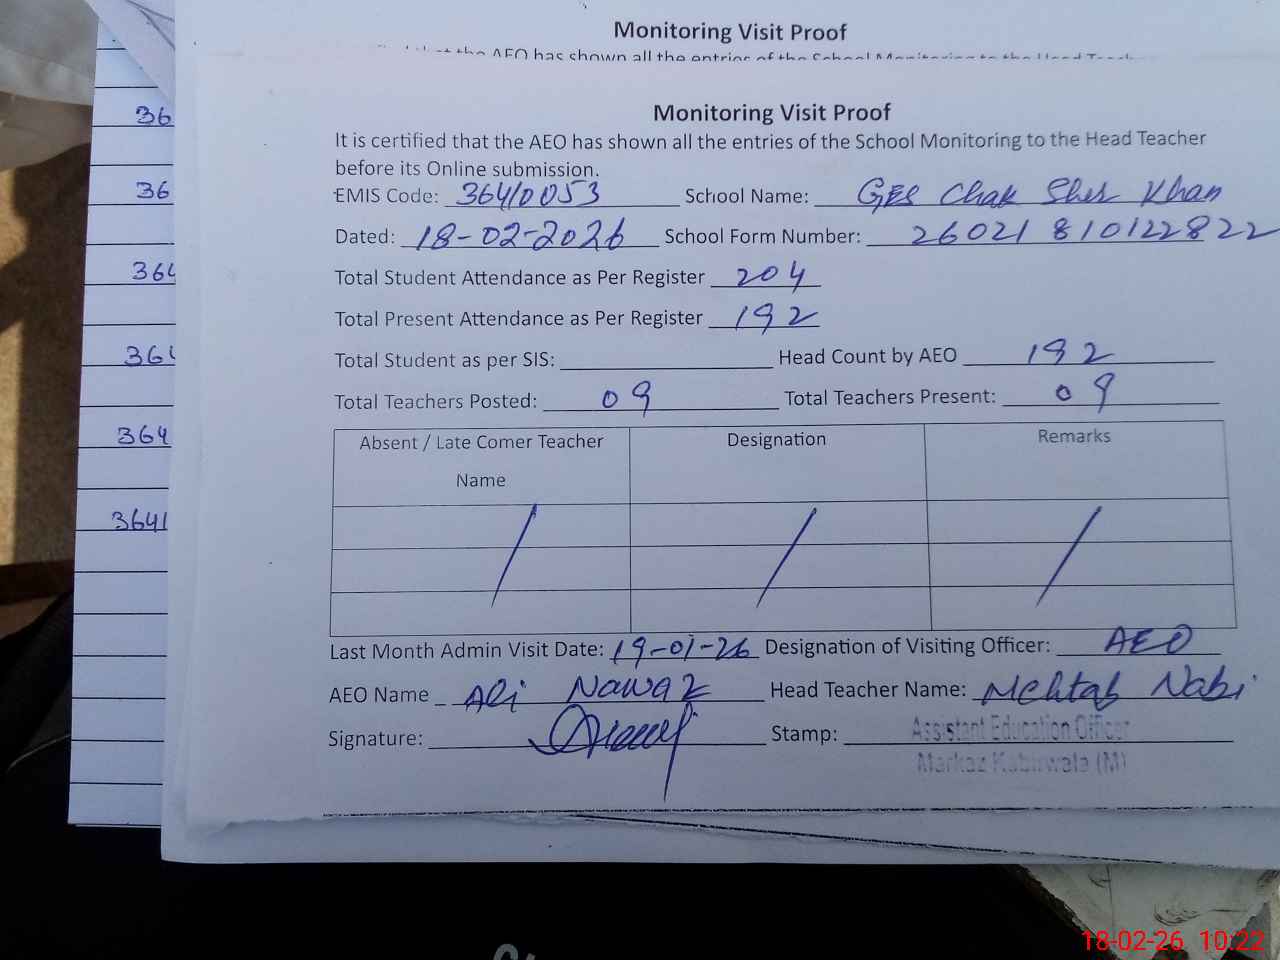 Monitoring Visit Proof
Monitoring Visit Proof
It is certified that the AEO has shown all the entries of the School Monitoring to the Head Teacher
before its Online submission.
EMIS Code: 36410053 School Name: GES Chak Sher Khan
Dated: 18-02-2026 School Form Number: 26021810122822
Total Student Attendance as Per Register 204
Total Present Attendance as Per Register 192
Total Student as per SIS: Head Count by AEO 192
Total Teachers Posted: 09 Total Teachers Present: 09
Absent / Late Comer Teacher Name Designation Remarks
Last Month Admin Visit Date: 19-01-26 Designation of Visiting Officer: AEO
AEO Name Ali Nawaz Head Teacher Name: Mehtab Nabi
Signature: Stamp: Assistant Education Officer
Markaz Kabirwala (M)
36
36
364
364
364
3641
18-02-26 10:22